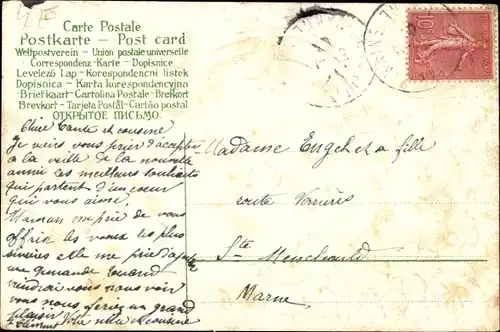 Carte Postale
Postkarte - Post card
Weltpostverein - Union postale universelle
Correspondenz-Karte - Dopisnice
Levelező Lap - Korespondencni listek
Dopisnica - Karta korespondencyjna
Briefkaart - Cartolina Postale - Brefkort
Brevkort - Tarjeta Postál - Cartão postal
ОТКРЫТОЕ ПИСЬМО.
Chère tante et cousine
Je viens vous prier d'accepter
à la veille de la nouvelle
année les meilleurs souhaits
qui partent d'un coeur
qui vous aime.
Maman me prie de vous
offrir les voeux les plus
sincères elle me prie d'ajouter
me demande quand
viendrai vous nous voir
vous nous feriez un grand
plaisir Votre et cousine
Clément
Madame Engel et sa fille
route Verrières
Ste Menehould
Marne
10